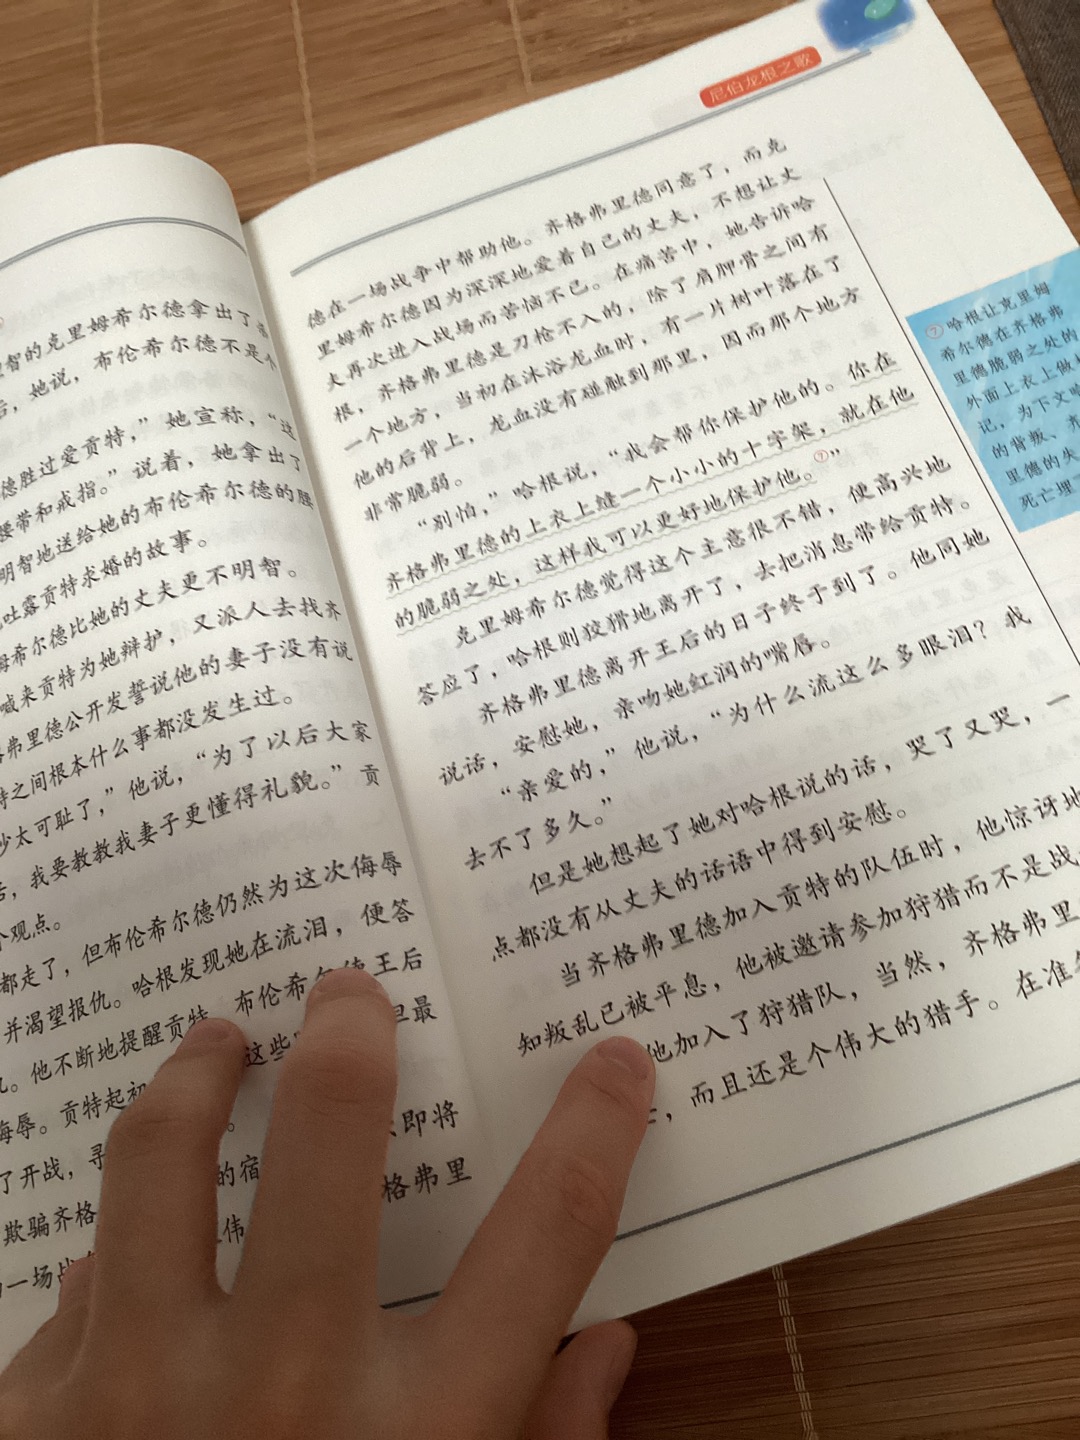 智的克里姆希尔德拿出了
后，她说，布伦希尔德不是个
德胜过爱贡特，”她宣称，“这
腰带和戒指。”说着，她拿出了
明智地送给她的布伦希尔德的腰
吐露贡特求婚的故事。
姆希尔德比她的丈夫更不明智。
喊来贡特为她辩护，又派人去找齐
弗里德公开发誓说他的妻子没有说
特之间根本什么事都没发生过。
太可耻了，”他说，“为了以后大家
后，我要教教我妻子更懂得礼貌。”贡
个观点。
都走了，但布伦希尔德仍然为这次侮辱
并渴望报仇。哈根发现她在流泪，便答
他不断地提醒贡特，布伦希尔德王后
侮辱。贡特起初 这些 但最
了开战，寻 的宿 即将
欺骗齐格 伟 格弗里
一场战
尼伯龙根之歌
德在一场战争中帮助他。齐格弗里德同意了，而克
里姆希尔德因为深深地爱着自己的丈夫，不想让丈
夫再次进入战场而苦恼不已。在痛苦中，她告诉哈
根，齐格弗里德是刀枪不入的，除了肩胛骨之间有
一个地方，当初在沐浴龙血时，有一片树叶落在了
他的后背上，龙血没有碰触到那里，因而那个地方
非常脆弱。
“别怕，”哈根说，“我会帮你保护他的。你在
齐格弗里德的上衣上缝一个小小的十字架，就在他
的脆弱之处，这样我可以更好地保护他。⑦”
克里姆希尔德觉得这个主意很不错，便高兴地
答应了，哈根则狡猾地离开了，去把消息带给贡特。
齐格弗里德离开王后的日子终于到了。他同她
说话，安慰她，亲吻她红润的嘴唇。
“亲爱的，”他说，“为什么流这么多眼泪？我
去不了多久。”
但是她想起了她对哈根说的话，哭了又哭，一
点都没有从丈夫的话语中得到安慰。
当齐格弗里德加入贡特的队伍时，他惊讶地
知叛乱已被平息，他被邀请参加狩猎而不是战
他加入了狩猎队，当然，齐格弗里
，而且还是个伟大的猎手。在准
⑦哈根让克里姆
希尔德在齐格弗
里德脆弱之处的
外面上衣上做标
记，为下文
的背叛、齐
里德的失
死亡埋